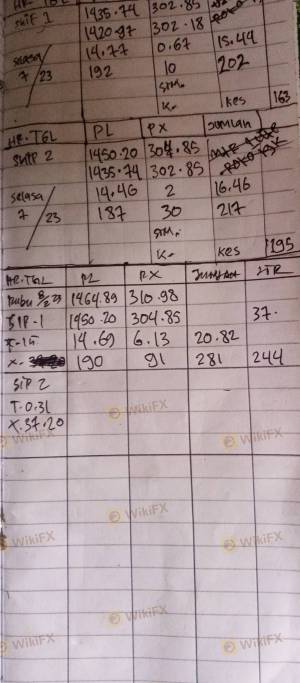 SHIF 1 1435.74 302.85
1420.97 302.18
selasa 14.77 0.67 15.44
7/23 192 10 202
STM.
K. Kes 163
HR.TGL PL PX JUMLAH
SHIP 2 1450.20 304.85
1435.74 302.85
selasa 14.46 2 16.46
7/23 187 30 217
STM.
K. Kes 195
HR.TGL PL PX JUMLAH
1464.89 310.98
SIP-1 1450.20 304.85 37.
14.69 6.13 20.82
X. 190 91 281 244
SIP 2
T.0.31
X.37.20
WikiFX
WikiFX
WikiFX
WikiFX
WikiFX
WikiFX
WikiFX
WikiFX